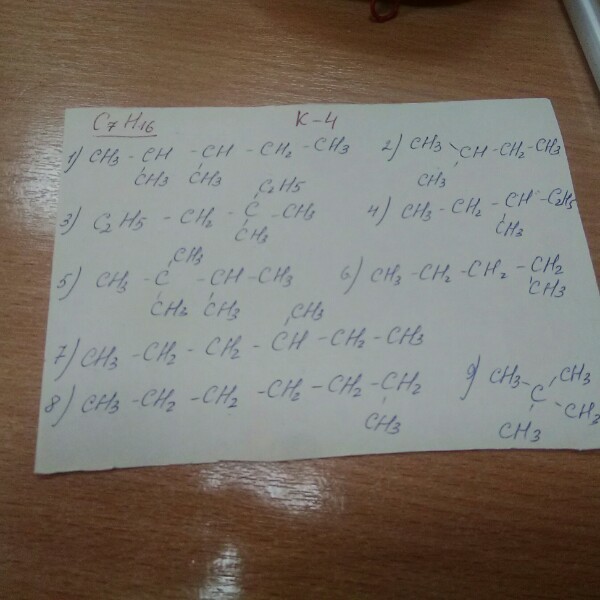 C7H16 K-4
1) CH3 - CH - CH - CH2 - CH3
CH3 CH3
2) CH3 CH - CH2 - CH3
CH3
C2H5
3) C2H5 - CH2 - C - CH3
CH3
4) CH3 - CH2 - CH - C2H5
CH3
CH3
5) CH3 - C - CH - CH3
CH3 CH3
6) CH3 - CH2 - CH2 - CH2
CH3
CH3
7) CH3 - CH2 - CH2 - CH - CH2 - CH3
8) CH3 - CH2 - CH2 - CH2 - CH2 - CH2
CH3
9) CH3 CH3
C
CH3
CH3